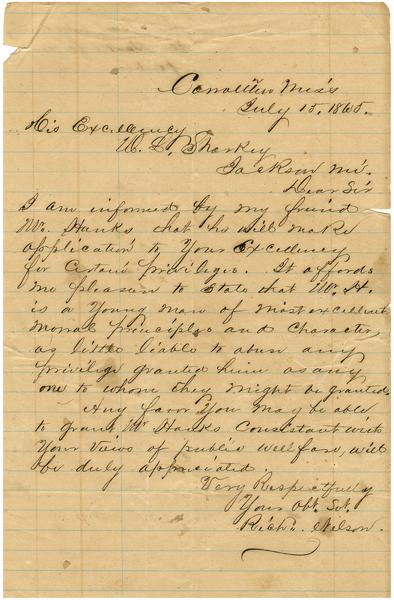 Carrollton Miss
July 15, 1865.
His Excellency
W. L. Sharkey
Jackson Mi.
Dear Sir
I am informed by my friend
Mr. Hanks that he will make
application to Your Excellency
for Certain privileges. It affords
me pleasure to State that Mr. H.
is a Young Man of Most excellent
Moral principles and Character,
as little liable to abuse any
privilege granted him as any
one to whom they might be granted.
Any favor You may be able
to grant Mr Hanks Consistant with
Your Views of public wellfare, will
be duly appreciated.
Very Respectfully
Your Obt. Svt.
Richd. Nelson.